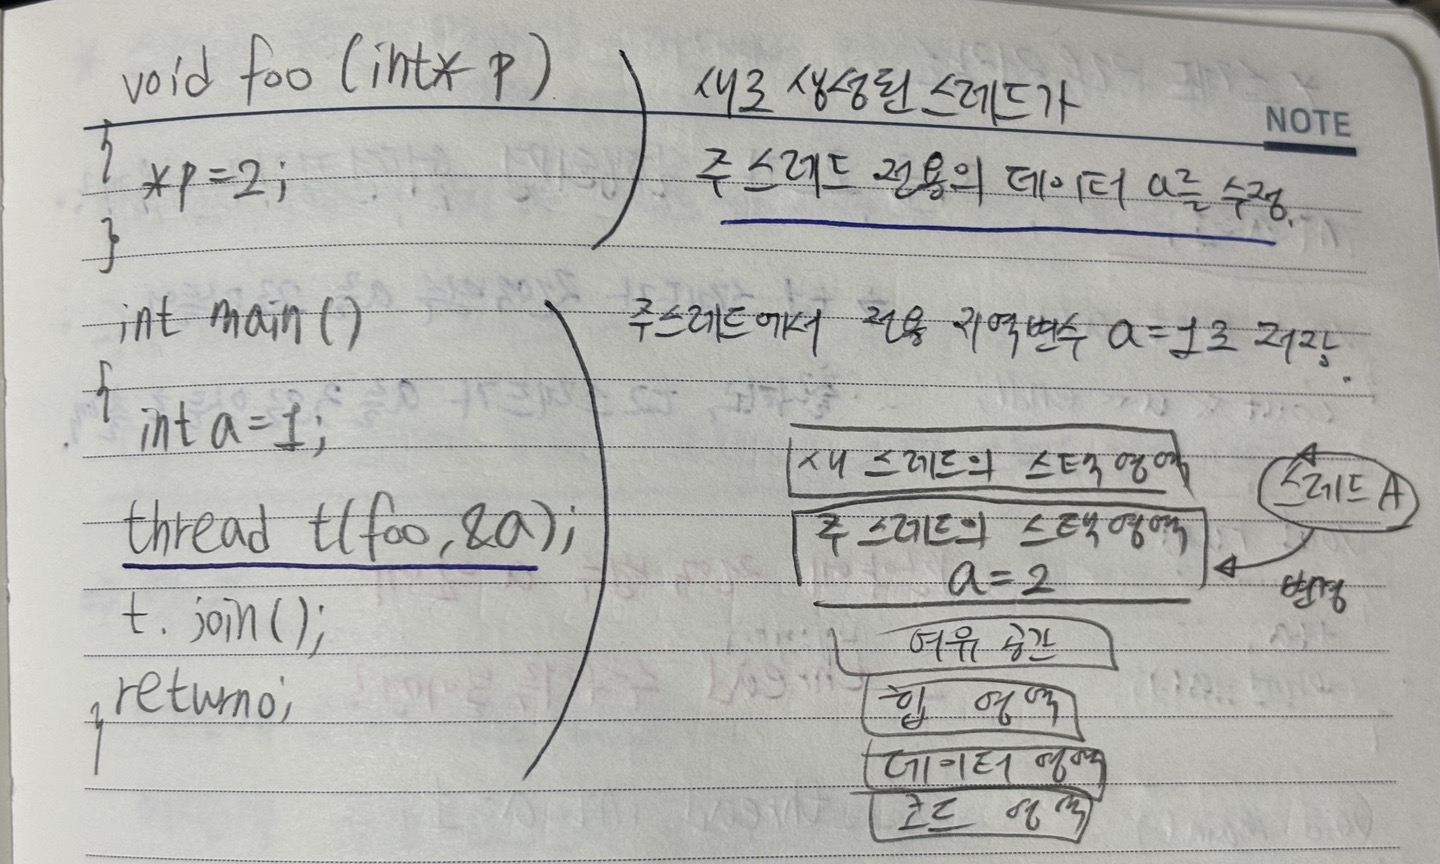 void foo (int* p)
{
*p=2;
}
int main ()
{
int a=1;
thread t(foo,&a);
t. join();
return0;
}
NOTE
새로 생성된 스레드가
주 스레드 전용의 데이터 a를 수정.
주스레드에서 전용 지역변수 a=1로 저장.
새 스레드의 스택영역
주 스레드의 스택영역
a=2
스레드 A
변경
여유 공간
힙 영역
데이터 영역
코드 영역